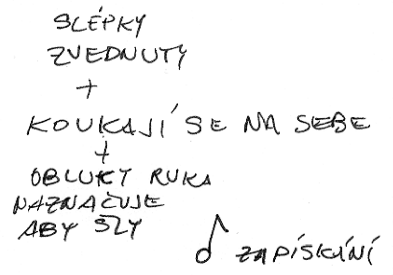 SLÉPKY
ZVEDNUTY
+
KOUKAJÍ SE NA SEBE
+
OBLUKY RUKA
NAZNAČUJE
ABY ŠLY
♪ ZAPÍSKÁNÍ